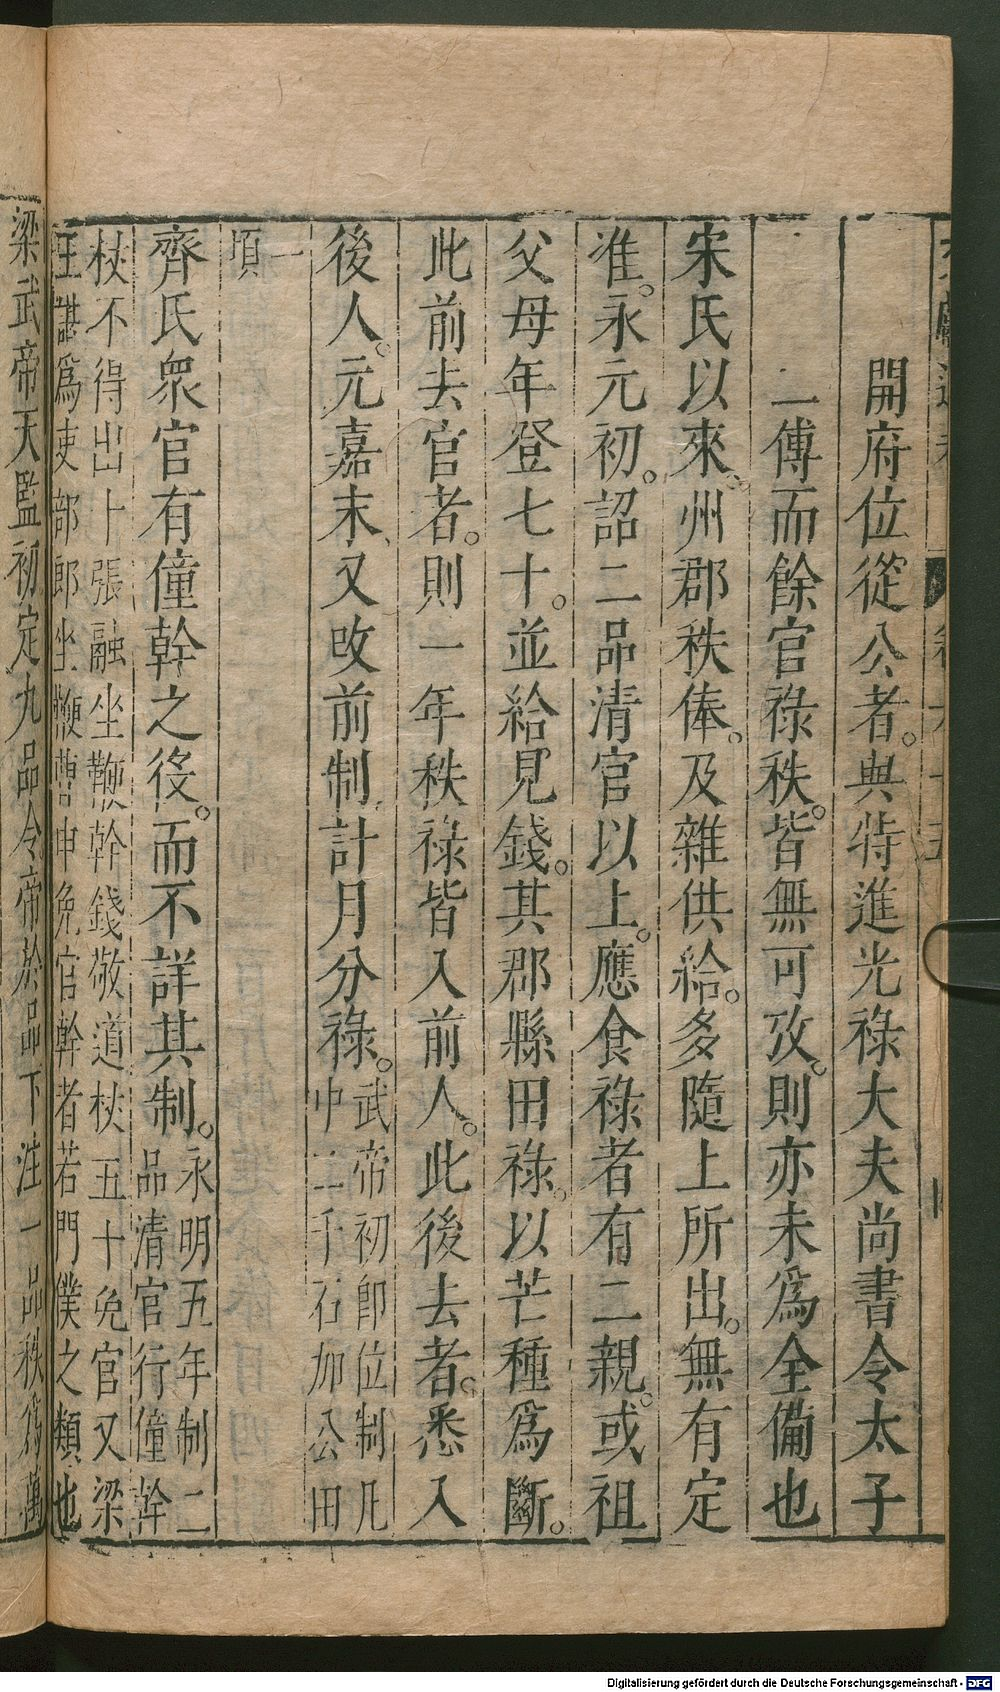 開府位從公者。與特進光祿大夫尚書令太子
二傅而餘官祿秩。皆無可攷。則亦未爲全備也
宋氏以來、州郡秩俸。及雜供給。多隨上所出。無有定
准。永元初。詔二品清官以上。應食祿者有二親。或祖
父母年登七十。並給見錢。其郡縣田祿。以芒種爲斷。
此前去官者。則一年秩祿皆入前人。此後去者。悉入
後人。元嘉末、又改前制、計月分祿。武帝初卽位制凡
中二千石加公田
一
頃
齊氏衆官有僮幹之役。而不詳其制。永明五年制二
品清官行僮幹
杖不得出上張融坐鞭幹錢敬道杖五十免官又梁
王諶爲吏部郎坐鞭曹申免官幹者若門僕之類也
梁武帝天監初定九品令帝於品下注一品秩爲萬
Digitalisierung gefördert durch die Deutsche Forschungsgemeinschaft - DFG